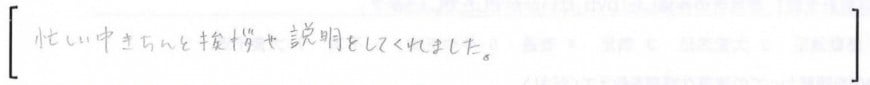 忙しい中きちんと挨拶や説明をしてくれました。